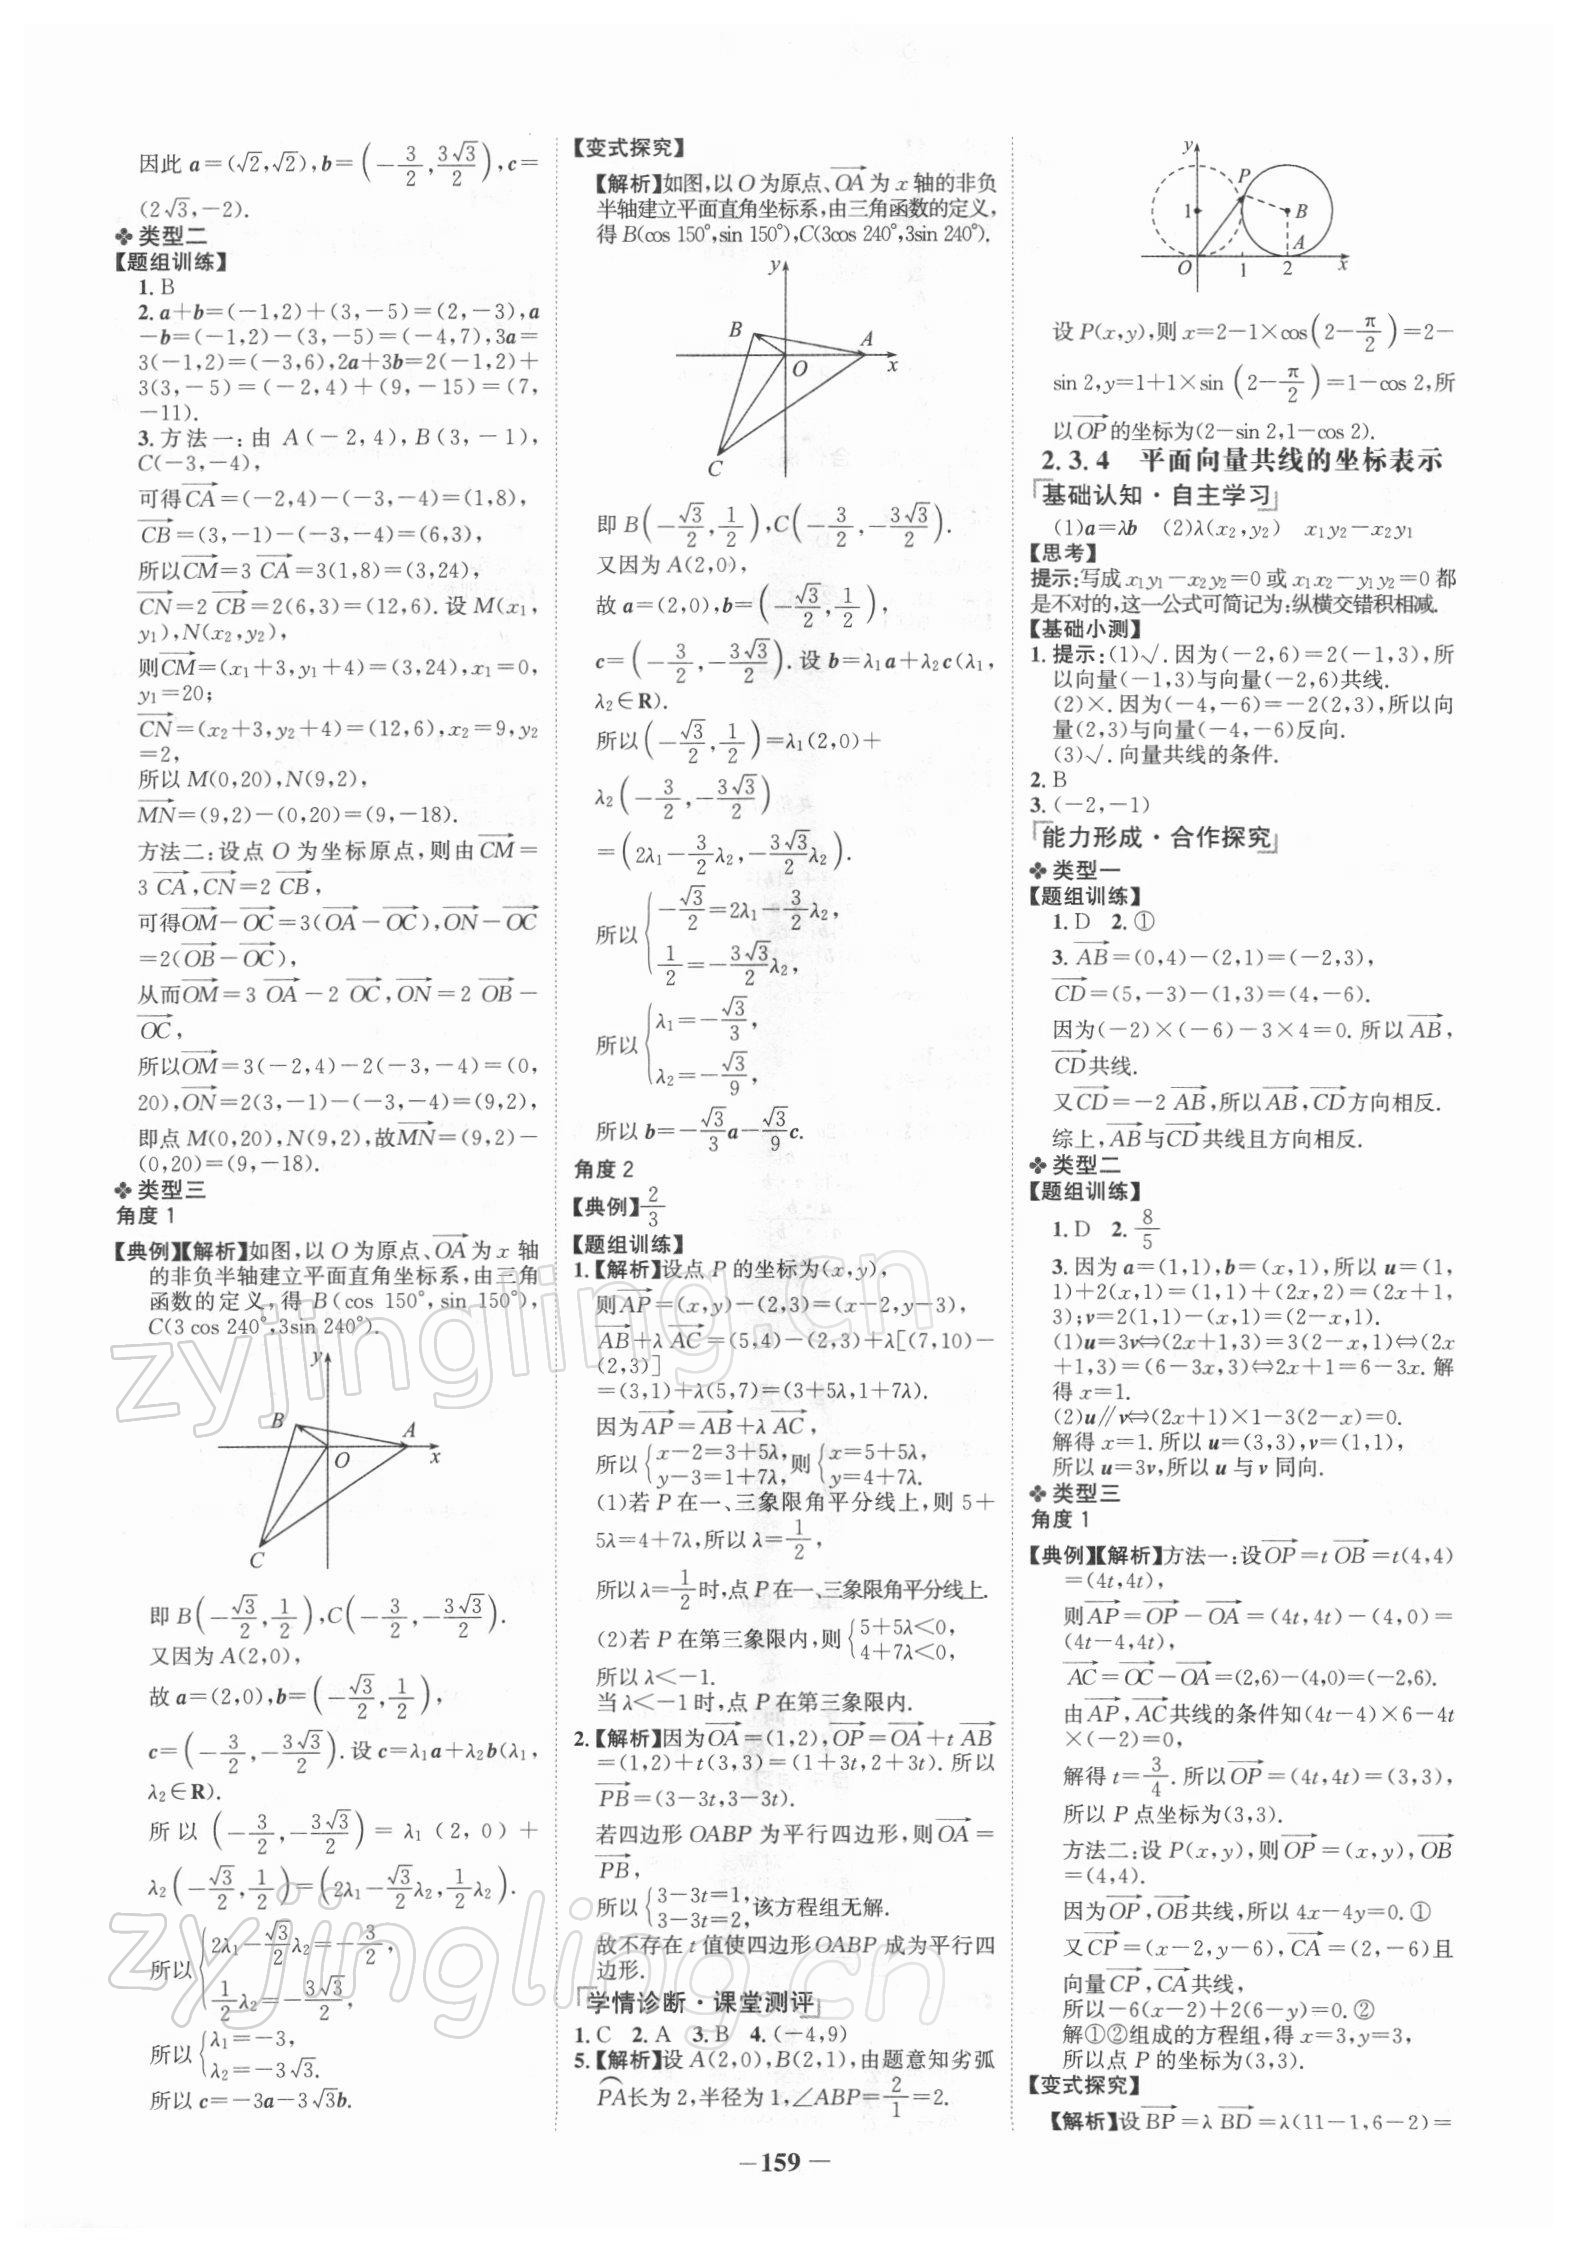 因此 a=(√2,√2),b=(-3/2,3√3/2),c=
(2√3,-2).
❖ 类型二
【题组训练】
1. B
2. a+b=(-1,2)+(3,-5)=(2,-3),a
-b=(-1,2)-(3,-5)=(-4,7),3a=
3(-1,2)=(-3,6),2a+3b=2(-1,2)+
3(3,-5)=(-2,4)+(9,-15)=(7,
-11).
3. 方法一:由 A(-2,4),B(3,-1),
C(-3,-4),
可得CA→=(-2,4)-(-3,-4)=(1,8),
CB→=(3,-1)-(-3,-4)=(6,3),
所以CM→=3 CA→=3(1,8)=(3,24),
CN→=2 CB→=2(6,3)=(12,6). 设 M(x₁,
y₁),N(x₂,y₂),
则CM→=(x₁+3,y₁+4)=(3,24),x₁=0,
y₁=20;
CN→=(x₂+3,y₂+4)=(12,6),x₂=9,y₂
=2,
所以 M(0,20),N(9,2),
MN→=(9,2)-(0,20)=(9,-18).
方法二:设点 O 为坐标原点,则由CM→=
3 CA→,CN→=2 CB→,
可得OM→-OC→=3(OA→-OC→),ON→-OC→
=2(OB→-OC→),
从而OM→=3 OA→-2 OC→,ON→=2 OB→-
OC→,
所以OM→=3(-2,4)-2(-3,-4)=(0,
20),ON→=2(3,-1)-(-3,-4)=(9,2),
即点 M(0,20),N(9,2),故MN→=(9,2)-
(0,20)=(9,-18).
❖ 类型三
角度 1
【典例】【解析】如图,以 O 为原点、OA→为 x 轴
的非负半轴建立平面直角坐标系,由三角
函数的定义,得 B(cos 150°,sin 150°),
C(3 cos 240°,3sin 240°).
y
B
A
O
x
C
即 B(-√3/2,1/2),C(-3/2,-3√3/2).
又因为 A(2,0),
故 a=(2,0),b=(-√3/2,1/2),
c=(-3/2,-3√3/2). 设 c=λ₁a+λ₂b(λ₁,
λ₂∈R).
所以 (-3/2,-3√3/2)= λ₁(2,0)+
λ₂(-√3/2,1/2)=(2λ₁-√3/2λ₂,1/2λ₂).
所以{2λ₁-√3/2λ₂=-3/2,
1/2λ₂=-3√3/2,
所以{λ₁=-3,
λ₂=-3√3.
所以 c=-3a-3√3b.
【变式探究】
【解析】如图,以 O 为原点、OA→为 x 轴的非负
半轴建立平面直角坐标系,由三角函数的定义,
得 B(cos 150°,sin 150°),C(3cos 240°,3sin 240°).
y
B
A
O
x
C
即 B(-√3/2,1/2),C(-3/2,-3√3/2).
又因为 A(2,0),
故 a=(2,0),b=(-√3/2,1/2),
c=(-3/2,-3√3/2). 设 b=λ₁a+λ₂c(λ₁,
λ₂∈R).
所以(-√3/2,1/2)=λ₁(2,0)+
λ₂(-3/2,-3√3/2)
=(2λ₁-3/2λ₂,-3√3/2λ₂).
所以{-√3/2=2λ₁-3/2λ₂,
1/2=-3√3/2λ₂,
所以{λ₁=-√3/3,
λ₂=-√3/9,
所以 b=-√3/3a-√3/9c.
角度 2
【典例】2/3
【题组训练】
1.【解析】设点 P 的坐标为(x,y),
则AP→=(x,y)-(2,3)=(x-2,y-3),
AB→+λ AC→=(5,4)-(2,3)+λ[(7,10)-
(2,3)]
=(3,1)+λ(5,7)=(3+5λ,1+7λ).
因为AP→=AB→+λ AC→,
所以{x-2=3+5λ, 则{x=5+5λ,
y-3=1+7λ, y=4+7λ.
(1)若 P 在一、三象限角平分线上,则 5+
5λ=4+7λ,所以 λ=1/2,
所以 λ=1/2时,点 P 在一、三象限角平分线上.
(2)若 P 在第三象限内,则{5+5λ<0,
4+7λ<0,
所以 λ<-1.
当 λ<-1 时,点 P 在第三象限内.
2.【解析】因为OA→=(1,2),OP→=OA→+t AB→
=(1,2)+t(3,3)=(1+3t,2+3t). 所以
PB→=(3-3t,3-3t).
若四边形 OABP 为平行四边形,则OA→=
PB→,
所以{3-3t=1,
3-3t=2, 该方程组无解.
故不存在 t 值使四边形 OABP 成为平行四
边形.
「学情诊断·课堂测评」
1. C 2. A 3. B 4. (-4,9)
5.【解析】设 A(2,0),B(2,1),由题意知劣弧
PA长为 2,半径为 1,∠ABP=2/1=2.
y
P
1
B
A
O 1 2 x
设 P(x,y),则 x=2-1×cos(2-π/2)=2-
sin 2,y=1+1×sin (2-π/2)=1-cos 2,所
以OP→的坐标为(2-sin 2,1-cos 2).
2.3.4 平面向量共线的坐标表示
「基础认知·自主学习」
(1)a=λb (2)λ(x₂,y₂) x₁y₂-x₂y₁
【思考】
提示:写成 x₁y₁-x₂y₂=0 或 x₁x₂-y₁y₂=0 都
是不对的,这一公式可简记为:纵横交错积相减.
【基础小测】
1. 提示:(1)√. 因为(-2,6)=2(-1,3),所
以向量(-1,3)与向量(-2,6)共线.
(2)×. 因为(-4,-6)=-2(2,3),所以向
量(2,3)与向量(-4,-6)反向.
(3)√. 向量共线的条件.
2. B
3. (-2,-1)
「能力形成·合作探究」
❖ 类型一
【题组训练】
1. D 2. ①
3. AB→=(0,4)-(2,1)=(-2,3),
CD→=(5,-3)-(1,3)=(4,-6).
因为(-2)×(-6)-3×4=0. 所以AB→,
CD→共线.
又CD→=-2 AB→,所以AB→,CD→方向相反.
综上,AB→与CD→共线且方向相反.
❖ 类型二
【题组训练】
1. D 2. 8/5
3. 因为 a=(1,1),b=(x,1),所以 u=(1,
1)+2(x,1)=(1,1)+(2x,2)=(2x+1,
3);v=2(1,1)-(x,1)=(2-x,1).
(1)u=3v⇔(2x+1,3)=3(2-x,1)⇔(2x
+1,3)=(6-3x,3)⇔2x+1=6-3x. 解
得 x=1.
(2)u∥v⇔(2x+1)×1-3(2-x)=0.
解得 x=1. 所以 u=(3,3),v=(1,1),
所以 u=3v,所以 u 与 v 同向.
❖ 类型三
角度 1
【典例】【解析】方法一:设OP→=t OB→=t(4,4)
=(4t,4t),
则AP→=OP→-OA→=(4t,4t)-(4,0)=
(4t-4,4t),
AC→=OC→-OA→=(2,6)-(4,0)=(-2,6).
由AP→,AC→共线的条件知(4t-4)×6-4t
×(-2)=0,
解得 t=3/4. 所以OP→=(4t,4t)=(3,3),
所以 P 点坐标为(3,3).
方法二:设 P(x,y),则OP→=(x,y),OB→
=(4,4).
因为OP→,OB→共线,所以 4x-4y=0. ①
又CP→=(x-2,y-6),CA→=(2,-6)且
向量CP→,CA→共线,
所以-6(x-2)+2(6-y)=0. ②
解①②组成的方程组,得 x=3,y=3,
所以点 P 的坐标为(3,3).
【变式探究】
【解析】设BP→=λ BD→=λ(11-1,6-2)=
-159-
zyjingling.cn
zyjingling.cn